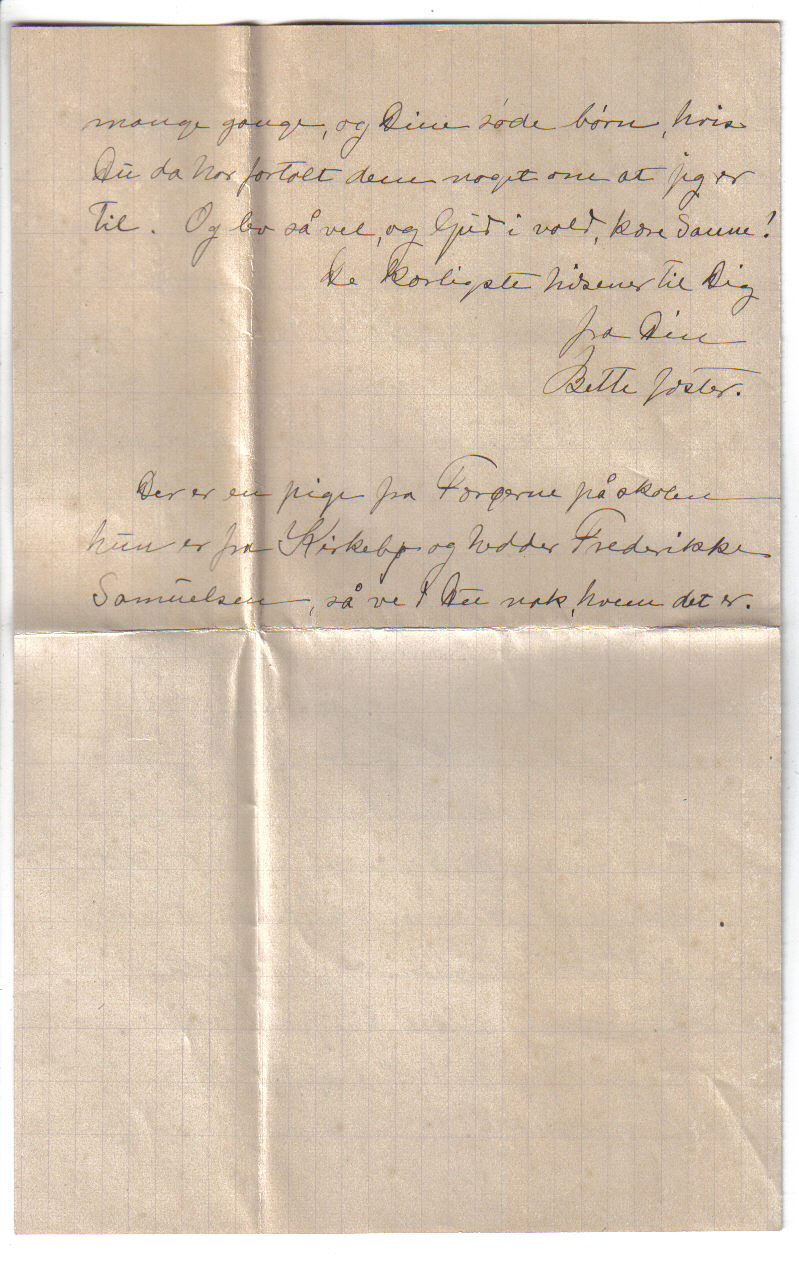 mange gange, og Dine søde børn, hvis
Du da har fortalt dem noget om at jeg er
til. Og lev så vel, og Gud i vold, kære Sanne!
De kærligste hilsener til Dig
fra Din
Bette søster.
Der er en pige fra Færøerne på skolen
hun er fra Kirkebø og hedder Frederikke
Samuelsen, så ved Du nok, hvem det er.